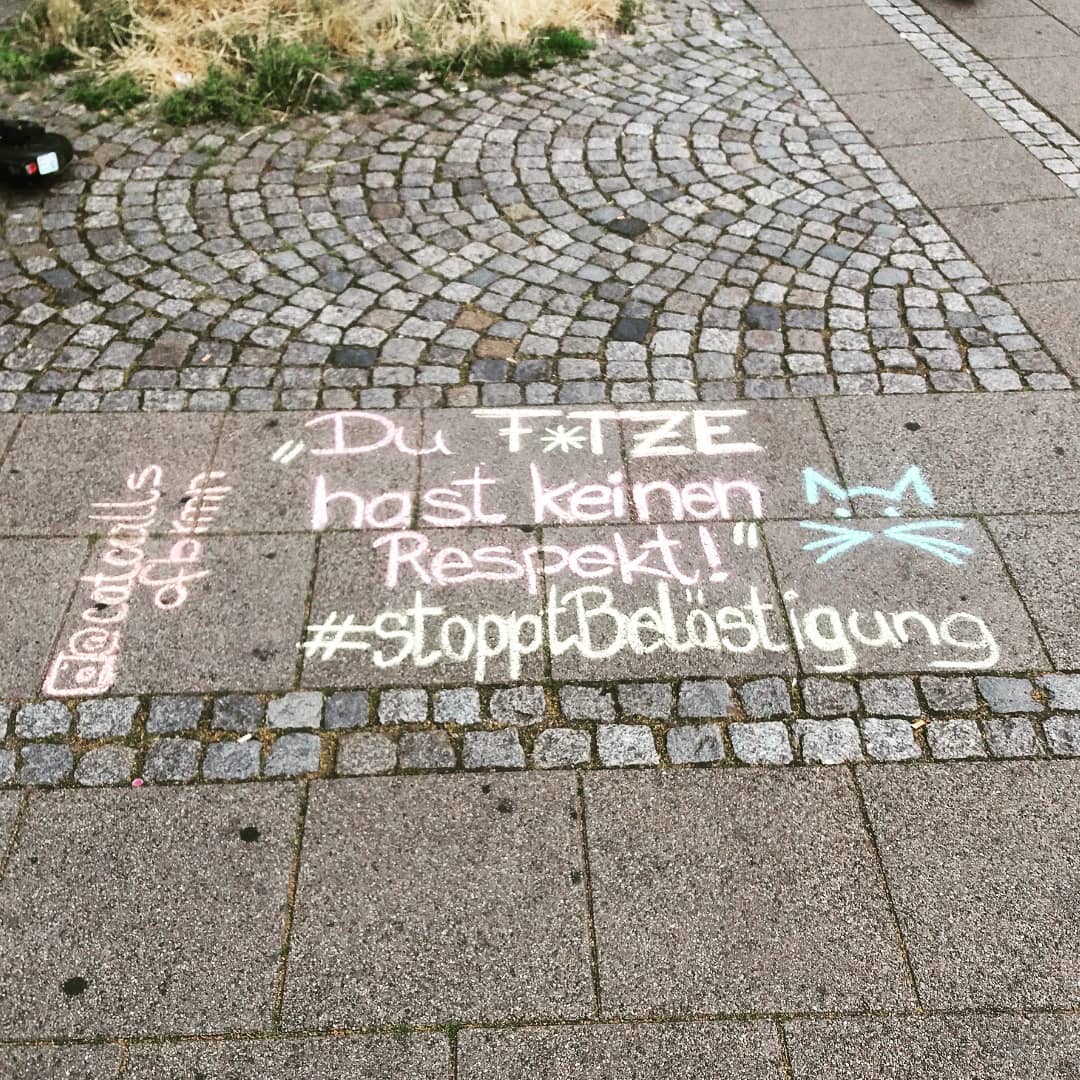 „Du F*TZE
hast keinen
Respekt!“
#stopptBelästigung
@catcalls
ofbrmn